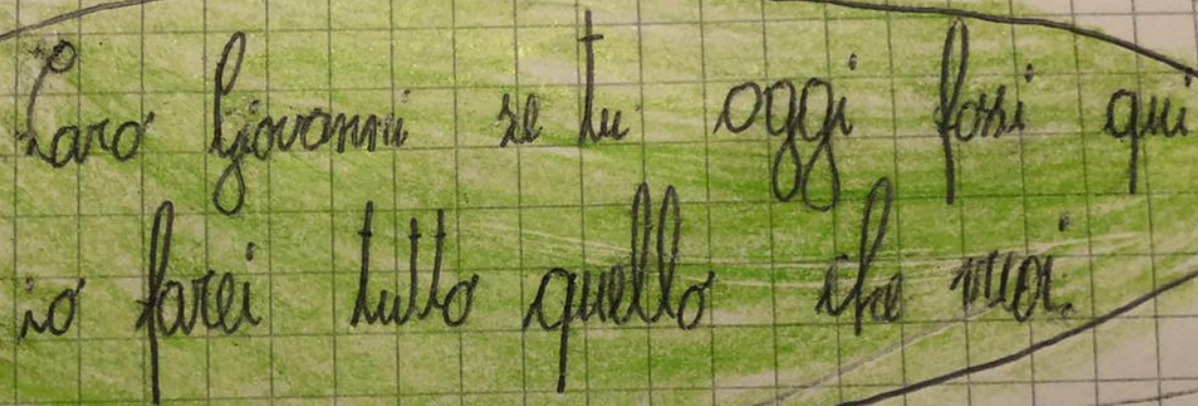 Caro Giovanni se tu oggi fossi qui
io farei tutto quello che vuoi.